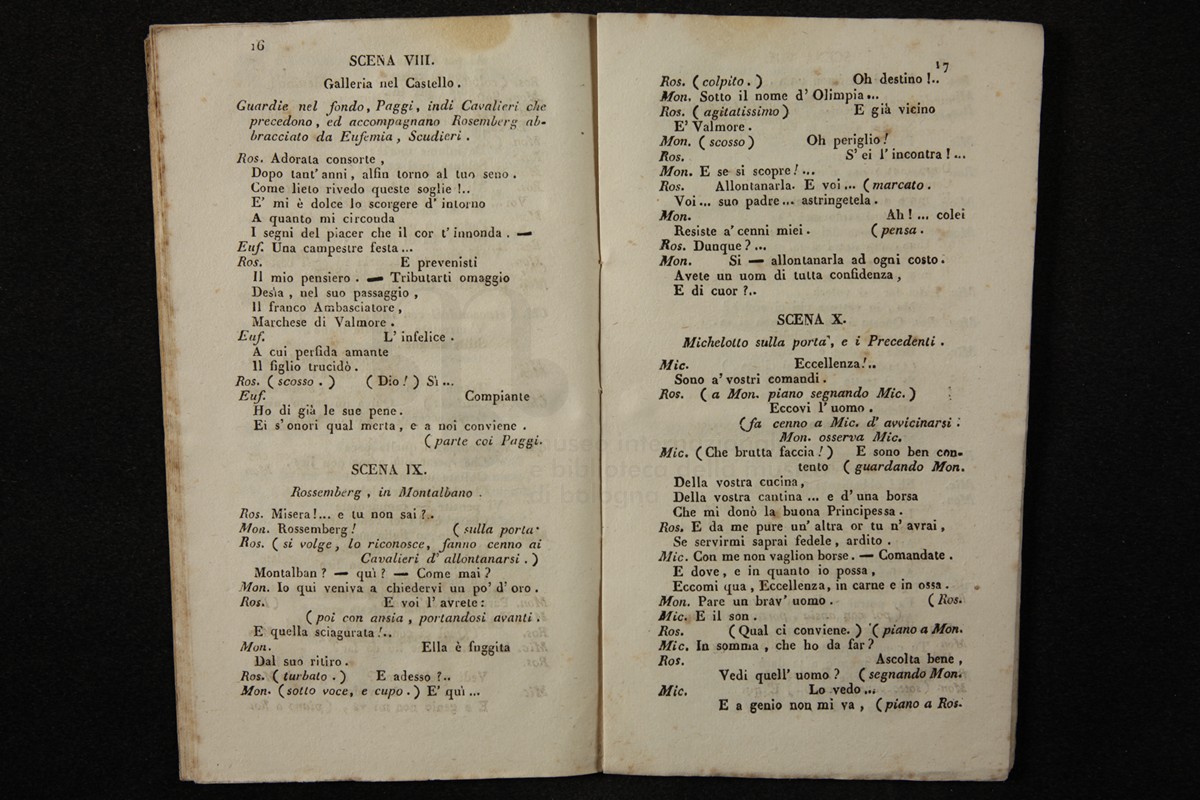 16
SCENA VIII.
Galleria nel Castello .
Guardie nel fondo, Paggi, indi Cavalieri che
precedono, ed accompagnano Rosemberg ab-
bracciato da Eufemia, Scudieri .
Ros. Adorata consorte ,
Dopo tant' anni, alfin torno al tuo seno .
Come lieto rivedo queste soglie !..
E' mi è dolce lo scorgere d' intorno
A quanto mi circonda
I segni del piacer che il cor t' innonda . —
Euf. Una campestre festa ...
Ros. E prevenisti
Il mio pensiero . — Tributarti omaggio
Desìa , nel suo passaggio ,
Il franco Ambasciatore ,
Marchese di Valmore .
Euf. L' infelice .
A cui perfida amante
Il figlio trucidò .
Ros. ( scosso . ) ( Dio ! ) Sì ...
Euf. Compiante
Ho di già le sue pene .
Ei s' onori qual merta , e a noi conviene .
( parte coi Paggi.
SCENA IX.
Rossemberg , in Montalbano .
Ros. Misera !... e tu non sai ?.
Mon. Rossemberg ! ( sulla porta·
Ros. ( si volge, lo riconosce, fanno cenno ai
Cavalieri d' allontanarsi . )
Montalban ? — quì ? — Come mai ?
Mon. Io qui veniva a chiedervi un po' d' oro .
Ros. E voi l' avrete :
( poi con ansia , portandosi avanti .
E quella sciagurata !..
Mon. Ella è fuggita
Dal suo ritiro .
Ros. ( turbato . ) E adesso ?..
Mon. ( sotto voce, e cupo . ) E' quì ...
17
Ros. ( colpito . ) Oh destino !..
Mon. Sotto il nome d' Olimpia ...
Ros. ( agitatissimo ) E già vicino
E' Valmore .
Mon. ( scosso ) Oh periglio !
Ros. S' ei l' incontra ! ...
Mon. E se si scopre ! ...
Ros. Allontanarla. E voi ... ( marcato .
Voi ... suo padre ... astringetela .
Mon. Ah ! ... colei
Resiste a' cenni miei . ( pensa .
Ros. Dunque ? ...
Mon. Si — allontanarla ad ogni costo .
Avete un uom di tutta confidenza ,
E di cuor ?..
SCENA X.
Michelotto sulla porta , e i Precedenti .
Mic. Eccellenza !..
Sono a' vostri comandi .
Ros. ( a Mon. piano segnando Mic. )
Eccovi l' uomo .
( fa cenno a Mic. d' avvicinarsi :
Mon. osserva Mic.
Mic. ( Che brutta faccia ! ) E sono ben con-
tento ( guardando Mon.
Della vostra cucina ,
Della vostra cantina ... e d' una borsa
Che mi donò la buona Principessa .
Ros. E da me pure un' altra or tu n' avrai ,
Se servirmi saprai fedele , ardito .
Mic. Con me non vaglion borse . — Comandate .
E dove , e in quanto io possa ,
Eccomi qua , Eccellenza, in carne e in ossa .
Mon. Pare un brav' uomo . ( Ros.
Mic. E il son .
Ros. ( Qual ci conviene. ) ( piano a Mon.
Mic. In somma , che ho da far ?
Ros. Ascolta bene ,
Vedi quell' uomo ? ( segnando Mon.
Mic. Lo vedo ...
E a genio non mi va , ( piano a Ros.